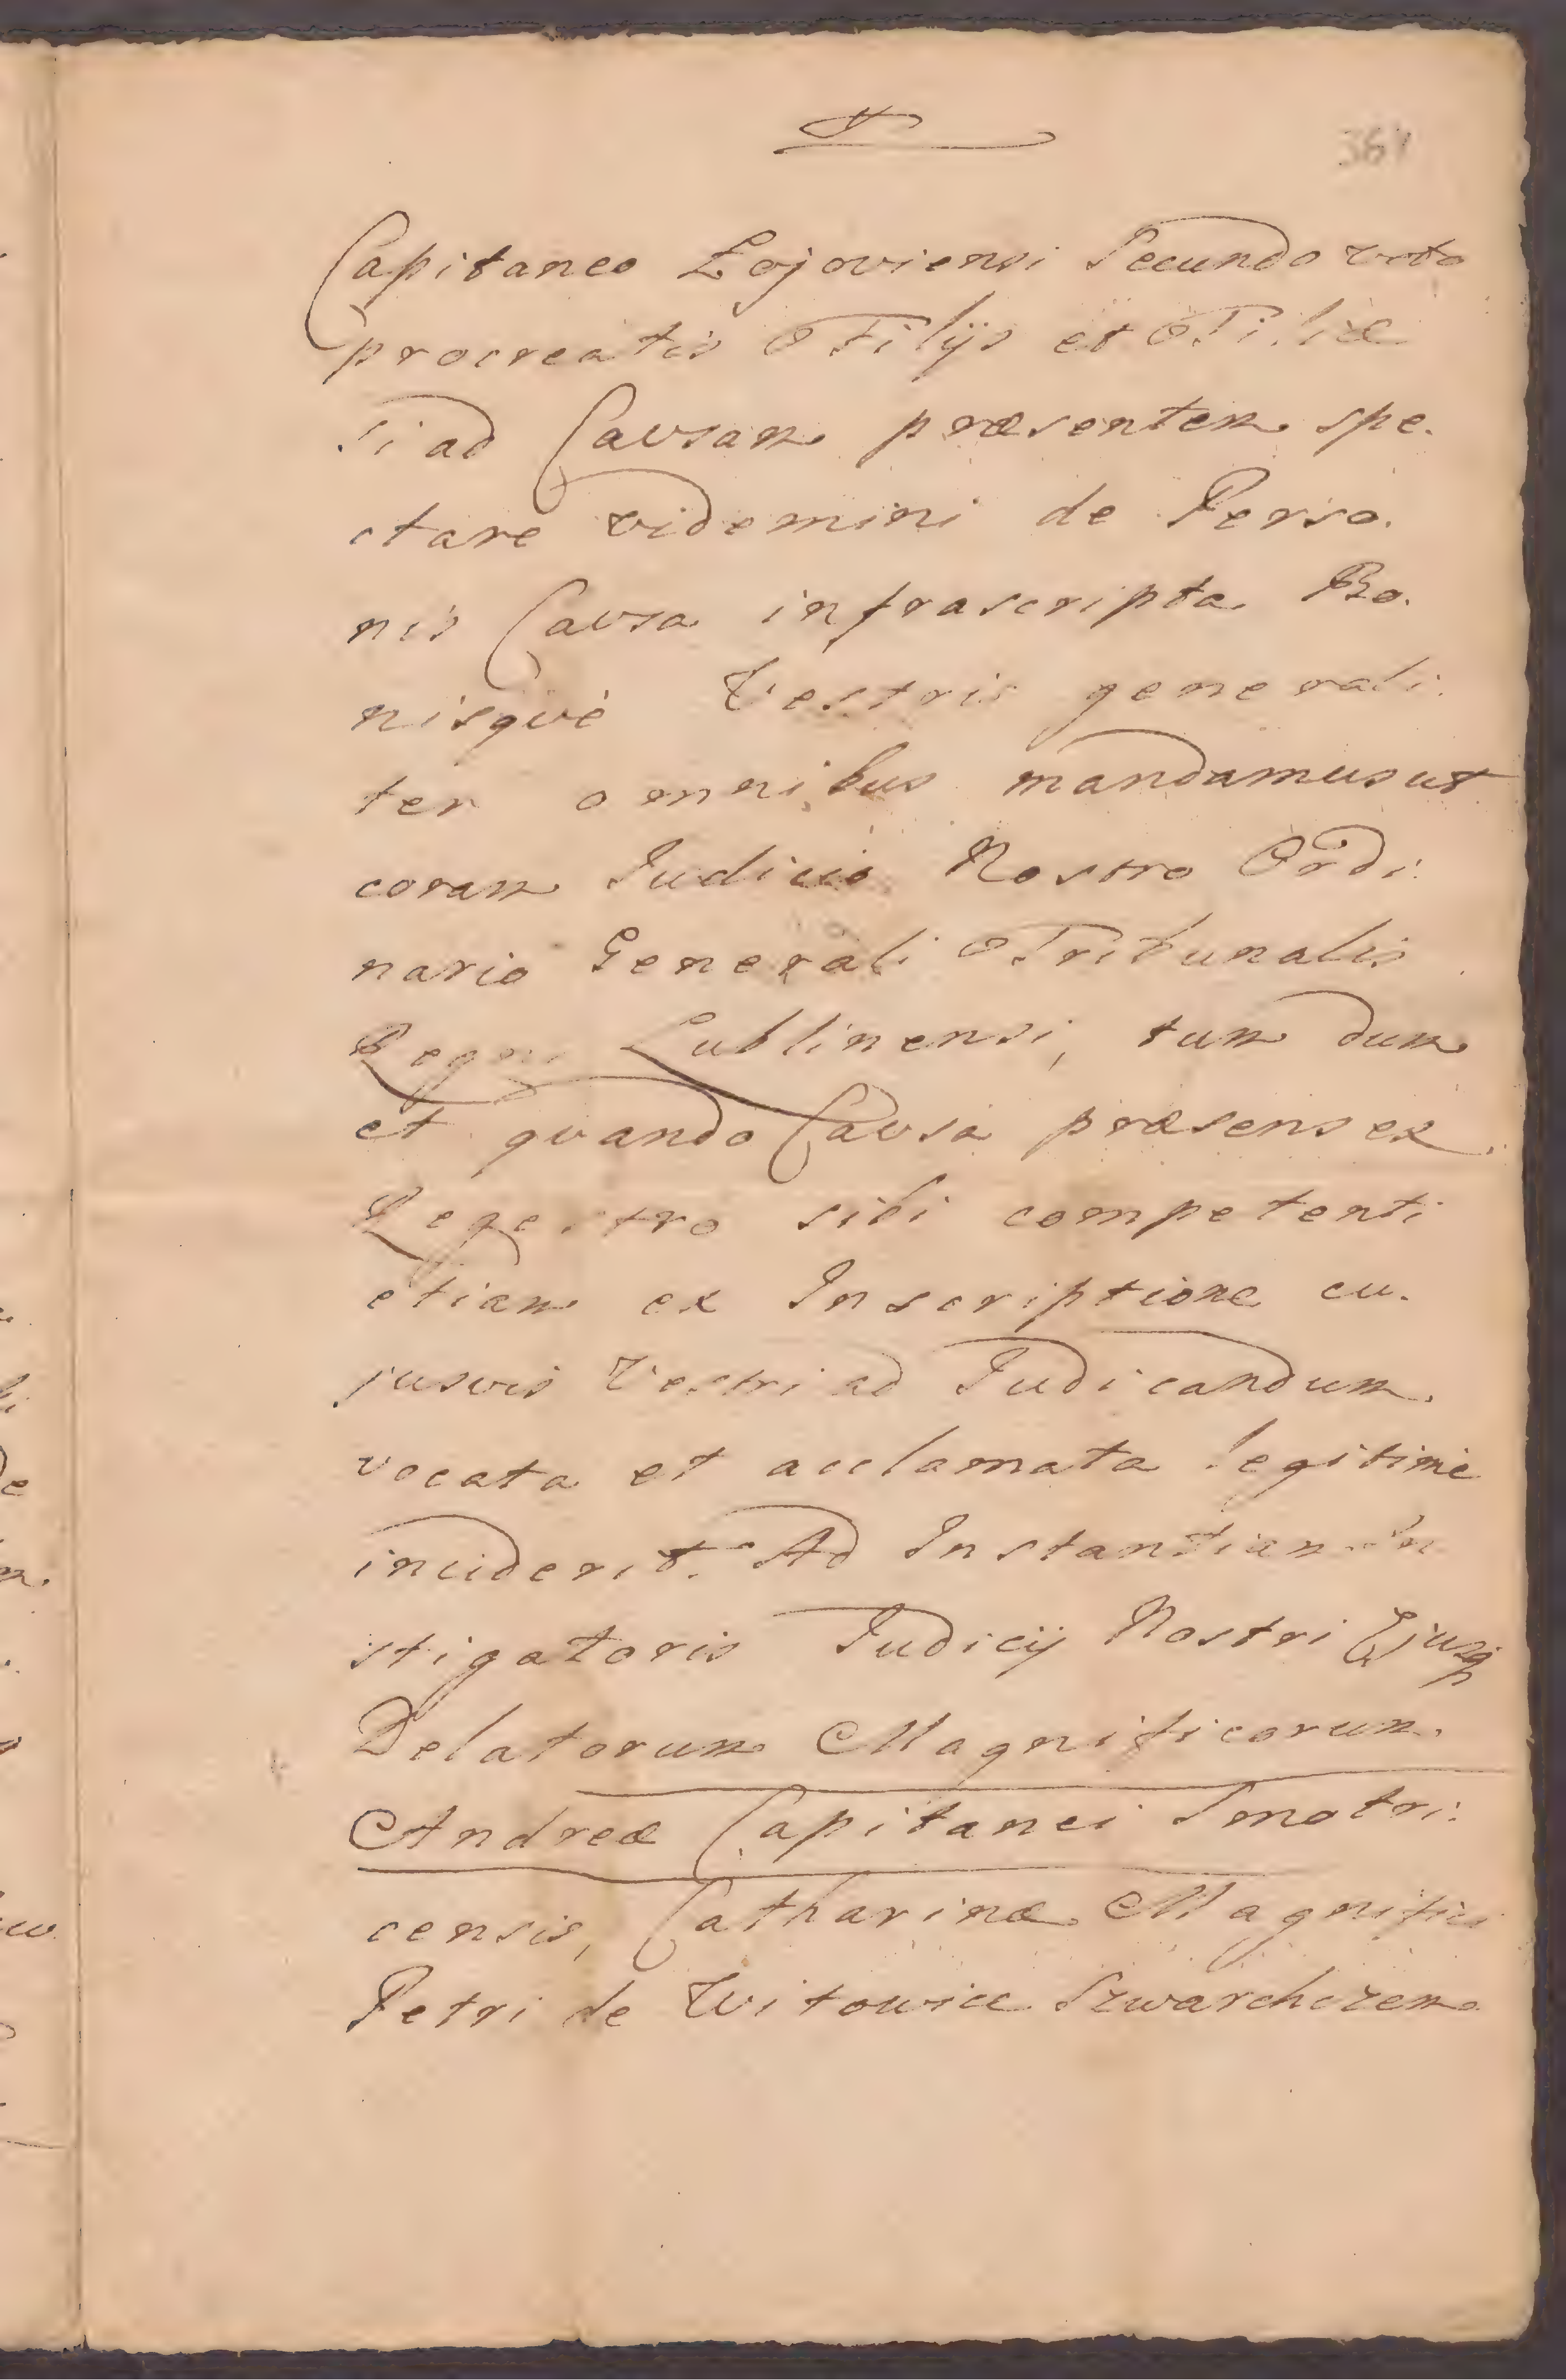 361
Capitaneo Łojoviensi Secundo voto
procreatis Filijs et Filiæ
si ad Causam præsentem spe.
ctare videmini de Perso.
nis Causa infrascripta Bo.
nisquè Vestris generali.
ter omnibus mandamus ut
coram Judicio Nostro Ordi.
nario Generali Tribunalis
Regni Lublinensi, tum dum
et quando Causa præsens ex
Regestro sibi competenti
etiam ex Inscriptione cu.
jusvis Vestri ad Judicandum.
vocata et acclamata legitimè
inciderit. Ad Instantiam In
stigatoris Judicij Nostri Ejusq
Delatorum Magnificorum.
Andreæ Capitanei Smotri.
censis, Catharinæ Magnifici
Petri de Witowice Szwarchczem